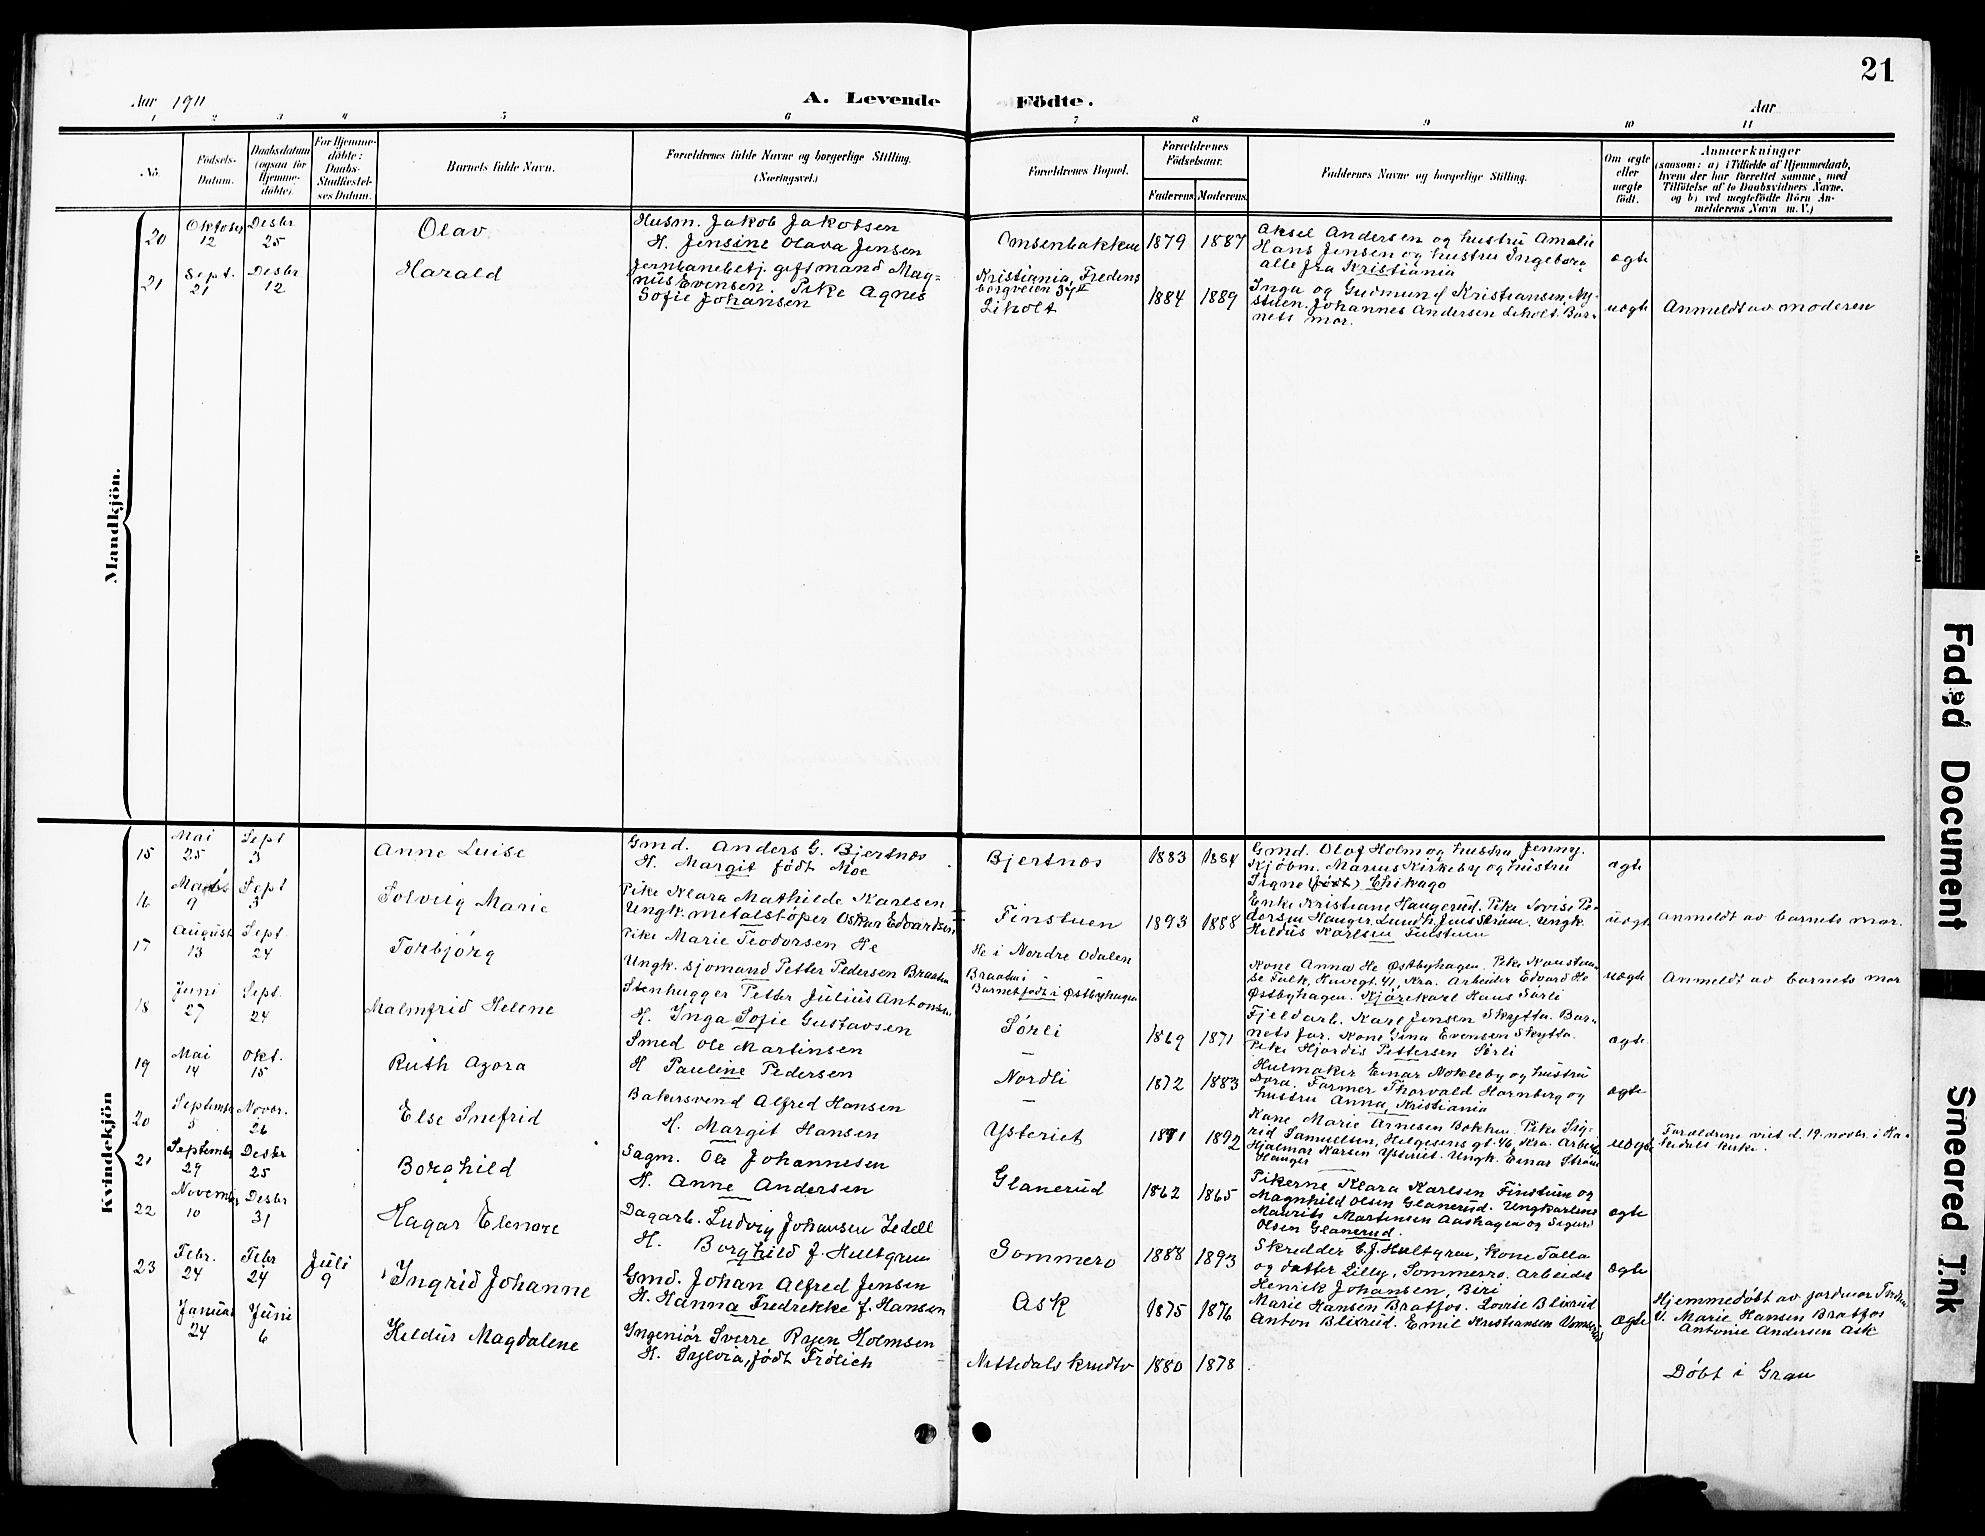 21
Aar 1911
A. Levende Födte.
Aar
1 2 3 4 5 6 7 8 9 10 11
No.
Födsels-
Datum.
Daabsdatum
(ogsaa for
Hjemme-
döbte).
For Hjemme-
döbte:
Daabs-
Stadfæstel-
ses Datum.
Barnets fulde Navn.
Forældrenes fulde Navne og borgerlige Stilling.
(Næringsvei.)
Forældrenes Bopæl.
Forældrenes
Födselsaar.
Faderens
Moderens
Faddernes Navne og borgerlige Stilling.
Om ægte
eller
uægte
födt.
Anmærkninger
(saasom: a) i Tilfælde af Hjemmedaab,
hvem der har forrettet samme, med
Tilföielse af to Daabsvidners Navne,
og b) ved uægtefödte Börn An-
melderens Navn m. V.)
Mandkjön.
20
Oktober
12
Desbr
25
Olav
Husm. Jakob Jakobsen
H. Jensine Olava Jensen
Omsenbakken
1879
1887
Aksel Andersen og hustru Amalie
Hans Jensen og hustru Ingeborg
alle fra Kristiania
ægte
21
Sept.
21
Desbr
12
Harald
Jernbanebetj. gift mand Mag-
nus Evensen. Pike Agnes
Sofie Johansen
Kristiania, Fredens
borgveien 37 II
Liholt
1884
1889
Inga og Gudmund Kristiansen, Ny-
stuen. Johannes Andersen Liholt. Bar-
nets mor.
uægte
Anmeldt av moderen
Kvindekjön
15
Mai
25
Sept
3
Anne Luise
Gmd. Anders G. Bjertnæs
H. Margit født Moe
Bjertnæs
1883
1884
Gmd. Olof Holm og hustru Jenny.
Kjøbm. Marius Kirkeby og hustru
Signe (født) Chikago
ægte
16
9
Sept
3
Solveig Marie
Pike Klara Mathilde Karlsen
Ungk. metalstøper Oskar Edvardsen
Finstuen
1893
1888
Enke Kristiane Haugerud. Pike Lovise Pe-
dersen Hauger Lund. Jens Strøm. Ungk.
Hildus Karlsen Finstuen
uægte
Anmeldt av barnets mor.
17
August
13
Sept.
24
Torbjørg
Pike Marie Teodorsen He
Ungk. sjømand Petter Pedersen Braaten
He i Nordre Odalen
Braaten i
Barnet født i Østbyhagen
Kone Anna He Østbyhagen. Pike
se Falk, 41, Kra. Arbeider Edvard He
Østbyhagen. Kjørekarl Hans Sørli
uægte
Anmeldt av barnets mor
18
Juni
27
Sept.
24
Malmfrid Helene
Stenhugger Petter Julius Antonsen
H. Inga Sofie Gustavsen
Sørli
1869
1871
Fjeldarb. Karl Jensen Skytta. Bar-
nets far. Kone Gina Evensen Skytta.
Pike Hjørdis Pettersen Sørli
ægte
19
Mai
14
Okt.
15
Ruth Agora
Smed Ole Martinsen
H Pauline Pedersen
Nordli
1872
1883
Hulmaker Einar Nokleby og hustru
Dora. Former Thorvald Hornberg og
hustru Anna, Kristiania
ægte
20
Septembr
5
Novbr.
26
Else Snefrid
Bakersvend Alfred Hansen
H. Margit Hansen
Ysteriet
1892
Kone Marie Arnesen Bakken. Pike Sig-
rid Samuelsen, Helgesens gt. 46, Kra. Arbeider
Hjalmar Karsen Ysteriet. Ungk. Einar Strøm
Hauger
uægte
Forældrene viet d. 19. novbr. i Ha-
kedals kirke.
21
Septembr
29
Desbr
25
Borghild
Sagm. Ole Johannesen
H. Anne Andersen
Glanerud
1862
1865
Pikerne Klara Karlsen Finstuen og
Magnhild Olsen Glanerud. Ungkarlene
Maurits Martinsen Aashagen og Sigurd
Olsen Glanerud.
ægte
22
November
10
Desbr
31
Hagar Elenore
Dagarb. Ludvig Johansen Zedell
H. Borghild f. Hultgren
Sommero
1888
1893
Skrædder C. J. Hultgren, kone Talla
og datter Lilly, Sommerro. Arbeider
Henrik Johansen, Biri
ægte
23
Febr.
24
Febr
24
Juli
9
Ingrid Johanne
Gmd. Johan Alfred Jensen
H. Hanna Fredrekke f. Hansen
Ask
1875
1876
Marie Hansen Bratfos. Lovise Blixrud
Anton Blixrud. Emil Kristiansen
ægte
Hjemmedøbt av jordmor
V. Marie Hansen Bratfos
Antonie Andersen Ask
Januar
24
Juni
6
Hildur Magdalene
Ingeniør Sverre Ryen Holmsen
H. Sylvia, født Frølich
Nittedals krudtv
1880
1878
Døbt i Gran
Faded Document
Smeared Ink